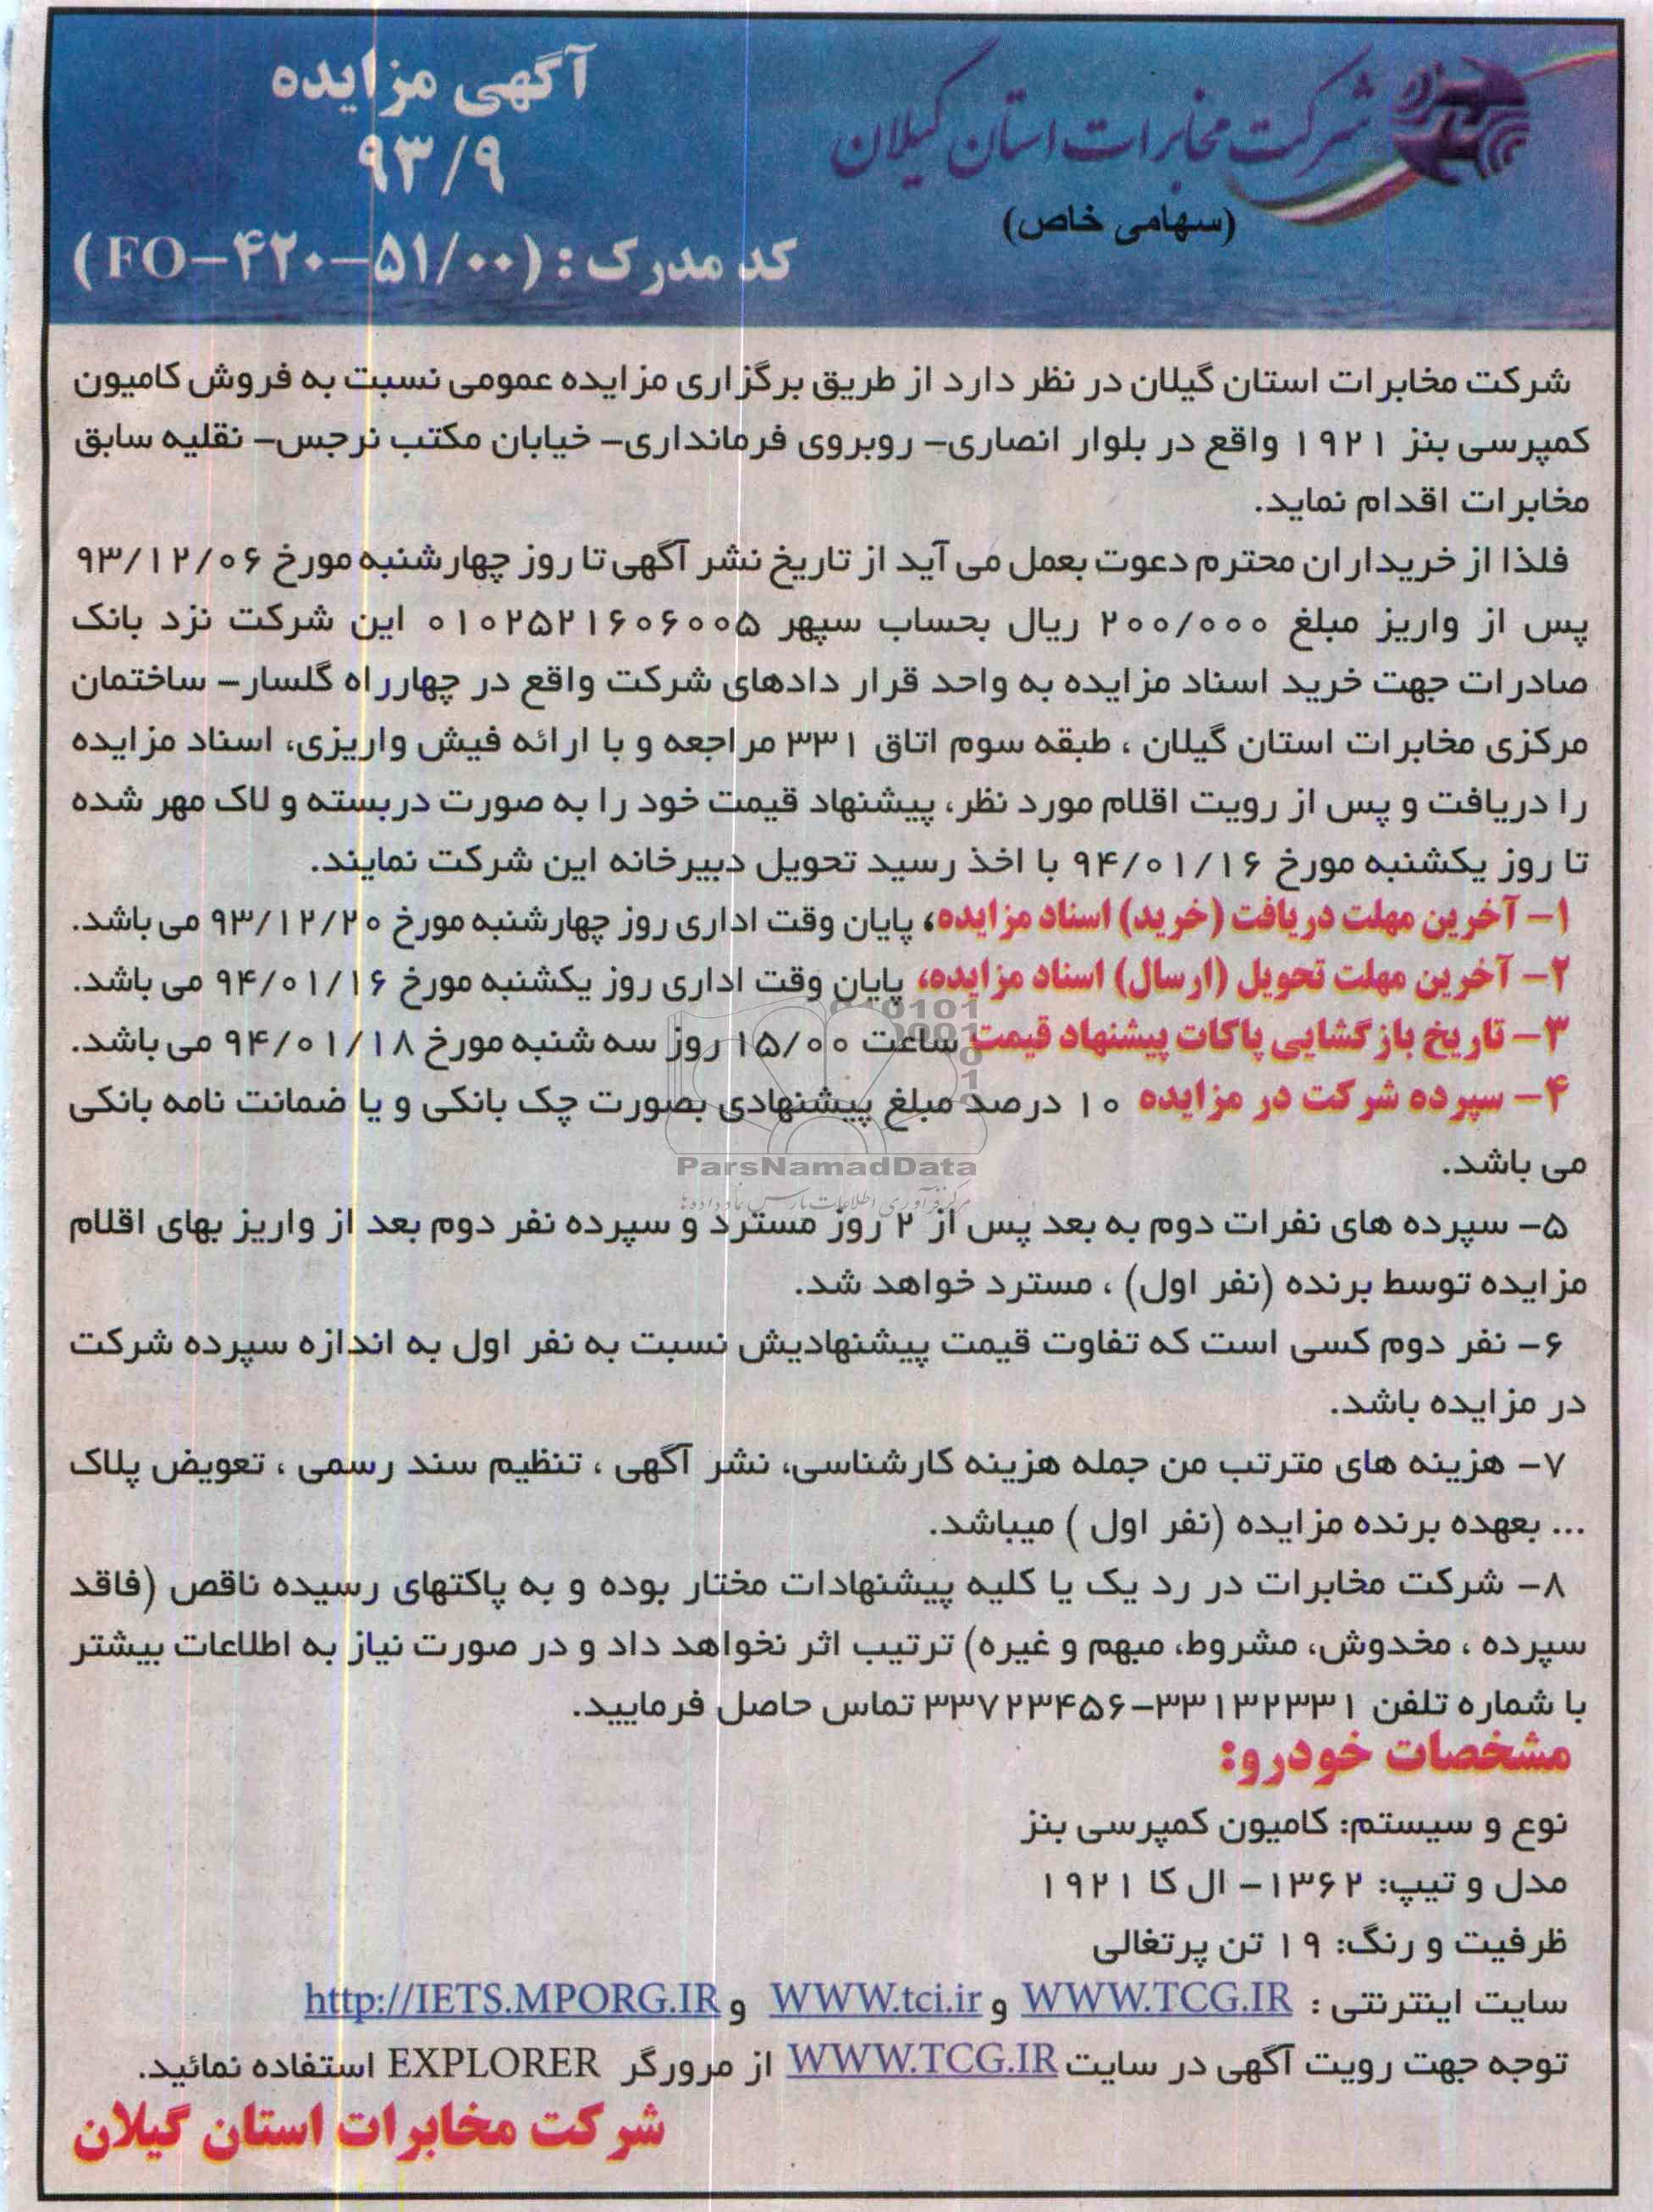 شرکت مخابرات استان گیلان
(سهامی خاص)
آگهی مزایده
۹۳/۹
کد مدرک : (FO-۴۲۰-۵۱/۰۰)
شرکت مخابرات استان گیلان در نظر دارد از طریق برگزاری مزایده عمومی نسبت به فروش کامیون
کمپرسی بنز ۱۹۲۱ واقع در بلوار انصاری- روبروی فرمانداری- خیابان مکتب نرجس- نقلیه سابق
مخابرات اقدام نماید.
فلذا از خریداران محترم دعوت بعمل می آید از تاریخ نشر آگهی تا روز چهارشنبه مورخ ۹۳/۱۲/۰۶
پس از واریز مبلغ ۲۰۰/۰۰۰ ریال بحساب سپهر ۰۱۰۲۵۲۱۶۰۶۰۰۵ این شرکت نزد بانک
صادرات جهت خرید اسناد مزایده به واحد قرار دادهای شرکت واقع در چهارراه گلسار- ساختمان
مرکزی مخابرات استان گیلان ، طبقه سوم اتاق ۳۳۱ مراجعه و با ارائه فیش واریزی، اسناد مزایده
را دریافت و پس از رویت اقلام مورد نظر، پیشنهاد قیمت خود را به صورت دربسته و لاک مهر شده
تا روز یکشنبه مورخ ۹۴/۰۱/۱۶ با اخذ رسید تحویل دبیرخانه این شرکت نمایند.
۱- آخرین مهلت دریافت (خرید) اسناد مزایده، پایان وقت اداری روز چهارشنبه مورخ ۹۳/۱۲/۲۰ می باشد.
۲- آخرین مهلت تحویل (ارسال) اسناد مزایده، پایان وقت اداری روز یکشنبه مورخ ۹۴/۰۱/۱۶ می باشد.
۳- تاریخ بازگشایی پاکات پیشنهاد قیمت ساعت ۱۵/۰۰ روز سه شنبه مورخ ۹۴/۰۱/۱۸ می باشد.
۴- سپرده شرکت در مزایده ۱۰ درصد مبلغ پیشنهادی بصورت چک بانکی و یا ضمانت نامه بانکی
می باشد.
ParsNamadData
مرکز فرآوری اطلاعات پارس نماد داده ها
۵- سپرده های نفرات دوم به بعد پس از ۲ روز مسترد و سپرده نفر دوم بعد از واریز بهای اقلام
مزایده توسط برنده (نفر اول) ، مسترد خواهد شد.
۶- نفر دوم کسی است که تفاوت قیمت پیشنهادیش نسبت به نفر اول به اندازه سپرده شرکت
در مزایده باشد.
۷- هزینه های مترتب من جمله هزینه کارشناسی، نشر آگهی ، تنظیم سند رسمی ، تعویض پلاک
... بعهده برنده مزایده (نفر اول ) میباشد.
۸- شرکت مخابرات در رد یک یا کلیه پیشنهادات مختار بوده و به پاکتهای رسیده ناقص (فاقد
سپرده ، مخدوش، مشروط، مبهم و غیره) ترتیب اثر نخواهد داد و در صورت نیاز به اطلاعات بیشتر
با شماره تلفن ۳۳۱۳۲۳۳۱-۳۳۷۲۳۴۵۶ تماس حاصل فرمایید.
مشخصات خودرو:
نوع و سیستم: کامیون کمپرسی بنز
مدل و تیپ: ۱۳۶۲- ال کا ۱۹۲۱
ظرفیت و رنگ: ۱۹ تن پرتغالی
سایت اینترنتی : WWW.TCG.IR و WWW.tci.ir و http://IETS.MPORG.IR
توجه جهت رویت آگهی در سایت WWW.TCG.IR از مرورگر EXPLORER استفاده نمائید.
شرکت مخابرات استان گیلان